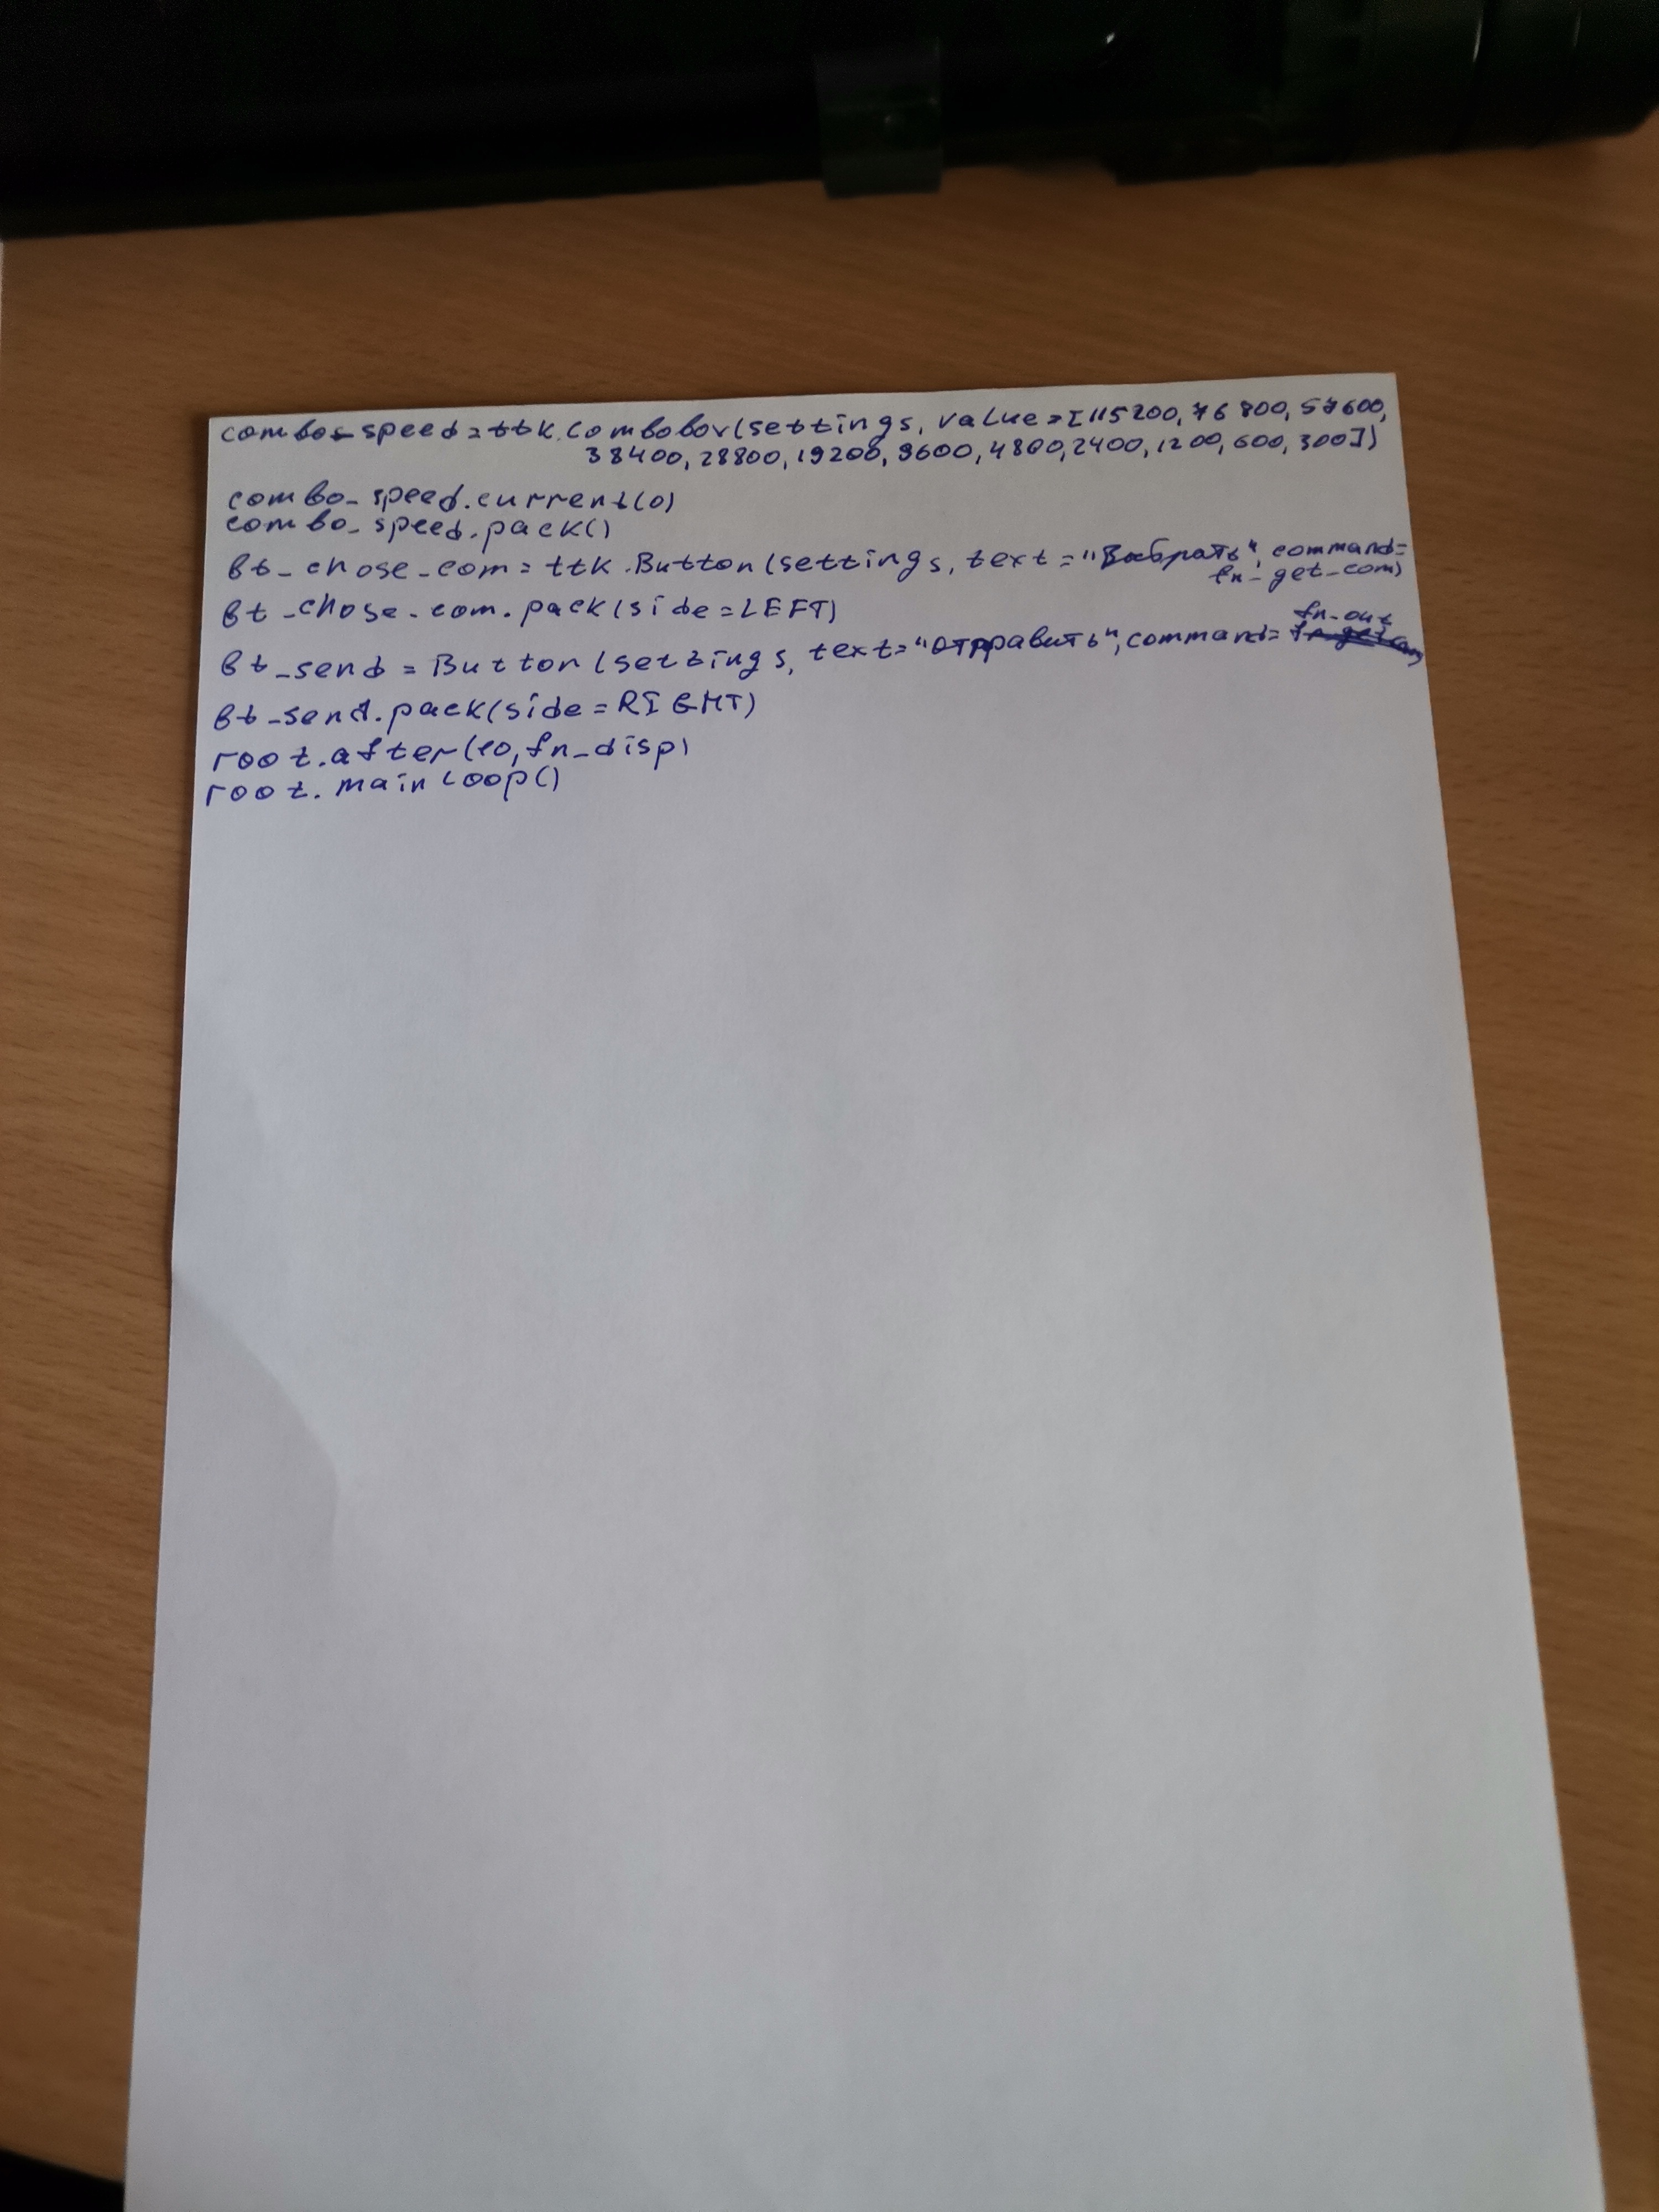 combo_speed=ttk.Combobox(settings, value=[115200, 76800, 57600,
38400, 28800, 19200, 9600, 4800, 2400, 1200, 600, 300])
combo_speed.current(0)
combo_speed.pack()
bt_chose_com = ttk.Button(settings, text="Выбрать", command=
fn_get_com)
bt_chose_com.pack(side=LEFT)
fn_out
bt_send = Button(settings, text="отправить", command=
bt_send.pack(side=RIGHT)
root.after(10, fn_disp)
root.mainloop()